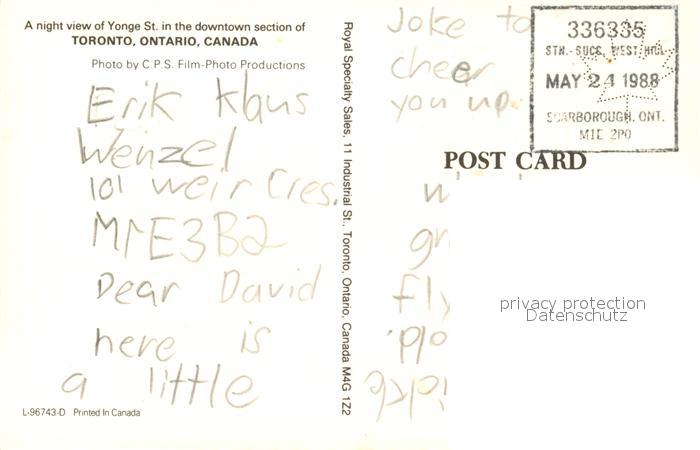 A night view of Yonge St. in the downtown section of
TORONTO, ONTARIO, CANADA
Photo by C.P.S. Film-Photo Productions
Erik Klaus
Wenzel
101 weir Cres.
M1E3B2
Dear David
here is
a little
L-96743-D Printed In Canada
Royal Specialty Sales, 11 Industrial St., Toronto, Ontario, Canada M4G 1Z2
Joke to
cheer
you up.
336335
STN.-SUCC. WEST HILL
MAY 24 1988
SCARBOROUGH, ONT.
M1E 2P0
POST CARD
privacy protection
Datenschutz